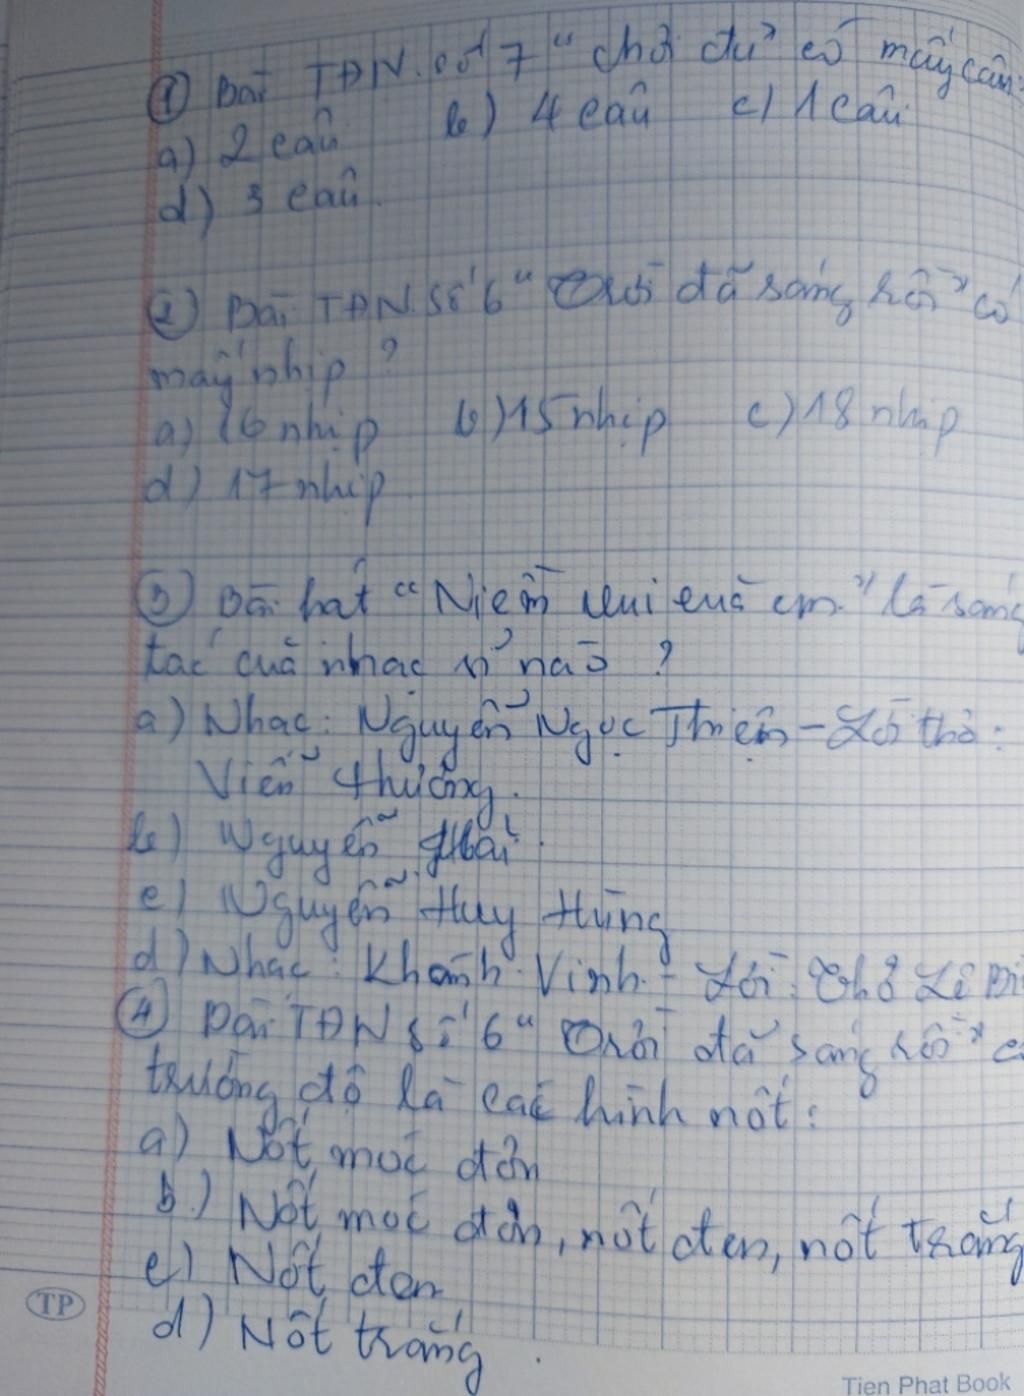 ① Bài TĐN số 7 "chơi đu" có mấy câu:
a) 2 câu b) 4 câu c) 1 câu
d) 3 câu.
② Bài TĐN số 6 "Trời đã sáng rồi" có
mấy nhịp?
a) 16 nhịp b) 15 nhịp c) 18 nhịp
d) 17 nhịp
③ Bài hát "Niềm vui của em" là sáng
tác của nhạc sĩ nào?
a) Nhạc: Nguyễn Ngọc Thiện - Lời thơ:
Viễn Phương.
b) Nguyễn Hải.
c) Nguyễn Huy Hùng
d) Nhạc: Khánh Vinh - Lời: Thơ Lê
④ Bài TĐN số 6 "Trời đã sáng rồi"
trường độ là các hình nốt:
a) Nốt móc đơn
b) Nốt móc đơn, nốt đen, nốt trắng
c) Nốt đen
d) Nốt trắng.
TP
Tien Phat Book